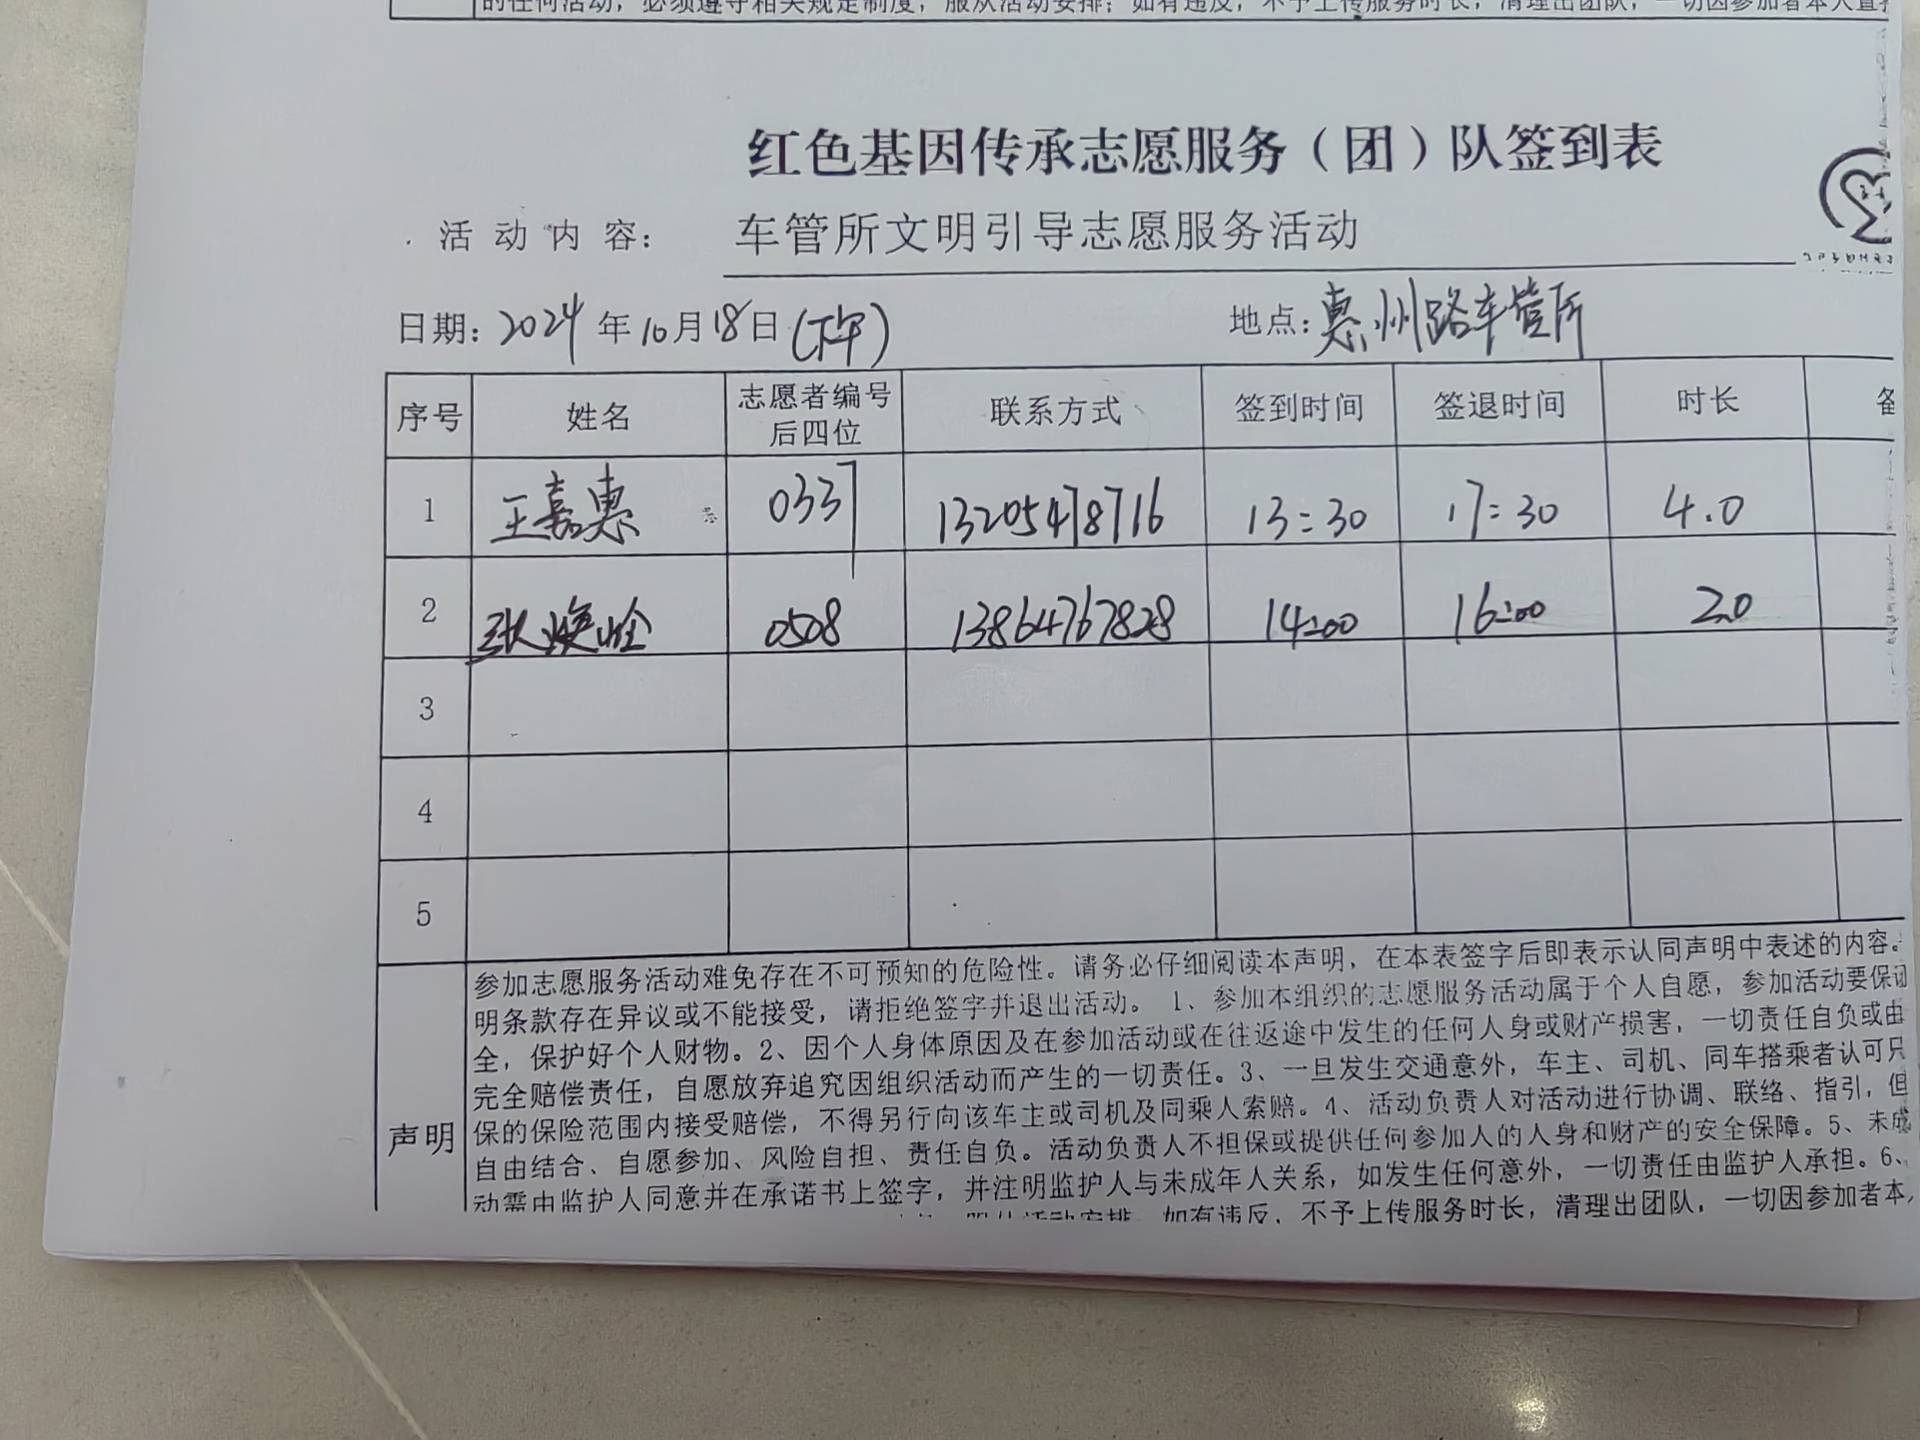 的任何活动，必须遵守相关规定制度，服从活动安排；如有违反，不予上传服务时长，清理出团队，一切因参加者本人直接
红色基因传承志愿服务（团）队签到表
活动内容： 车管所文明引导志愿服务活动
日期：2024年10月18日（下午） 地点：惠州路车管所
序号 姓名 志愿者编号后四位 联系方式 签到时间 签退时间 时长 备
1 王嘉惠 0337 13205478716 13:30 17:30 4.0
2 张焕 0508 13864767828 14:00 16:00 2.0
3
4
5
声明
参加志愿服务活动难免存在不可预知的危险性。请务必仔细阅读本声明，在本表签字后即表示认同声明中表述的内容。
明条款存在异议或不能接受，请拒绝签字并退出活动。 1、参加本组织的志愿服务活动属于个人自愿，参加活动要保证
全，保护好个人财物。2、因个人身体原因及在参加活动或在往返途中发生的任何人身或财产损害，一切责任自负或由
完全赔偿责任，自愿放弃追究因组织活动而产生的一切责任。3、一旦发生交通意外，车主、司机、同车搭乘者认可只
保的保险范围内接受赔偿，不得另行向该车主或司机及同乘人索赔。4、活动负责人对活动进行协调、联络、指引，但
自由结合、自愿参加、风险自担、责任自负。活动负责人不担保或提供任何参加人的人身和财产的安全保障。5、未成
动需由监护人同意并在承诺书上签字，并注明监护人与未成年人关系，如发生任何意外，一切责任由监护人承担。6、
服从活动安排，如有违反，不予上传服务时长，清理出团队，一切因参加者本人